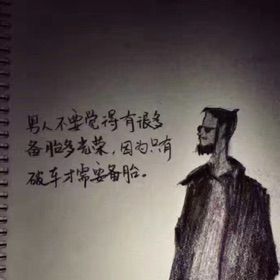 男人不要觉得有很多
备胎多光荣，因为只有
破车才需要备胎。